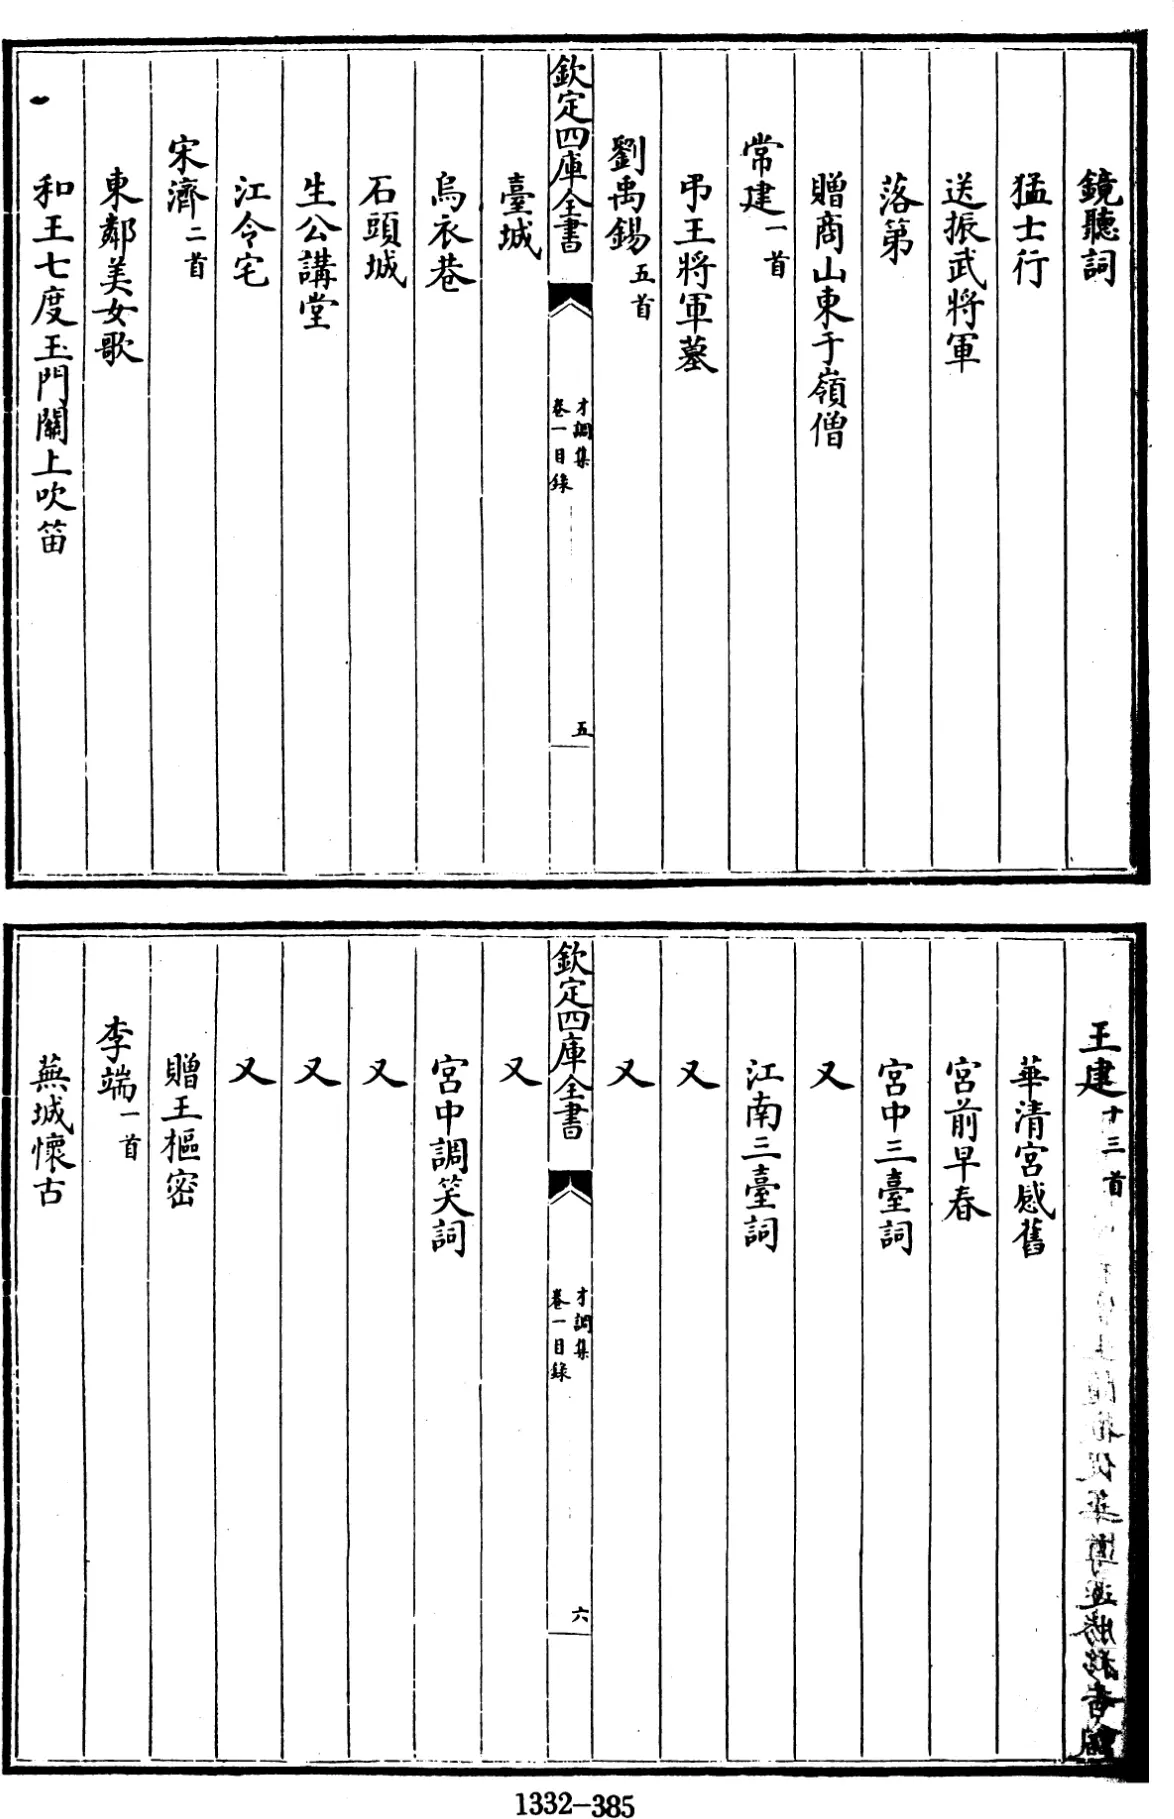 鏡聽詞
猛士行
送振武將軍
落第
贈商山東于嶺僧
常建一首
弔王將軍墓
劉禹錫五首
欽定四庫全書
才調集
卷一目錄
五
臺城
烏衣巷
石頭城
生公講堂
江令宅
宋濟二首
東鄰美女歌
和王七度玉門關上吹笛
王建十三首
華清宮感舊
宮前早春
宮中三臺詞
又
江南三臺詞
又
又
欽定四庫全書
才調集
卷一目錄
六
又
宮中調笑詞
又
又
又
贈王樞密
李端一首
蕪城懷古
1332-385